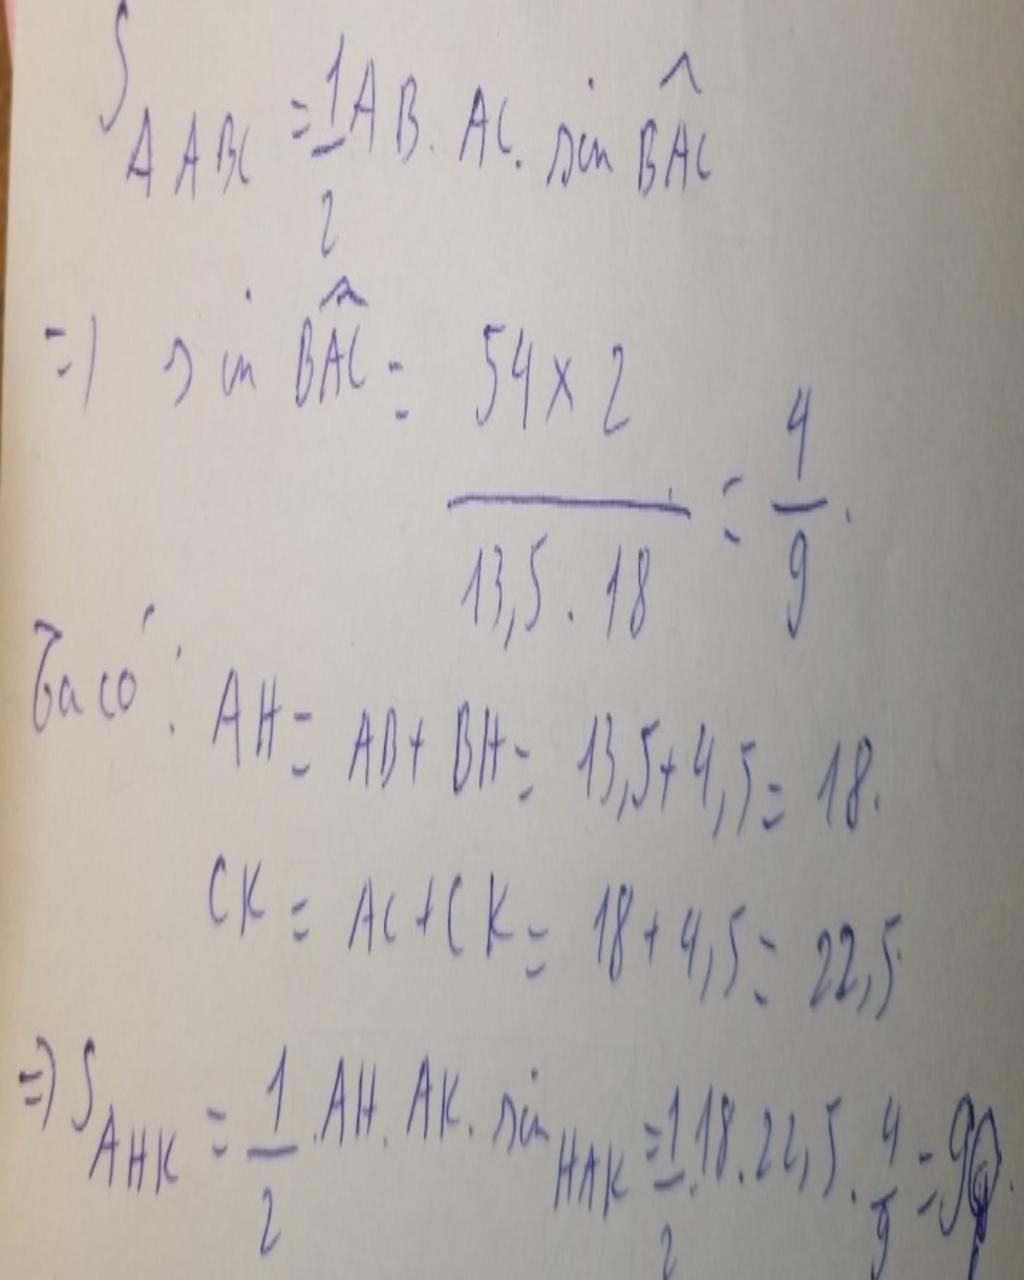 S_{ΔABC} = \frac{1}{2} AB. AC. sin \widehat{BAC}
=) sin \widehat{BAC} = \frac{54 x 2}{13,5 . 18} = \frac{4}{9}.
Ta có: AH = AB + BH = 13,5 + 4,5 = 18.
CK = AC + CK = 18 + 4,5 = 22,5
=) S_{AHK} = \frac{1}{2} . AH. AK. sin_{HAK} = \frac{1}{2} . 18. 22,5. \frac{4}{9} =